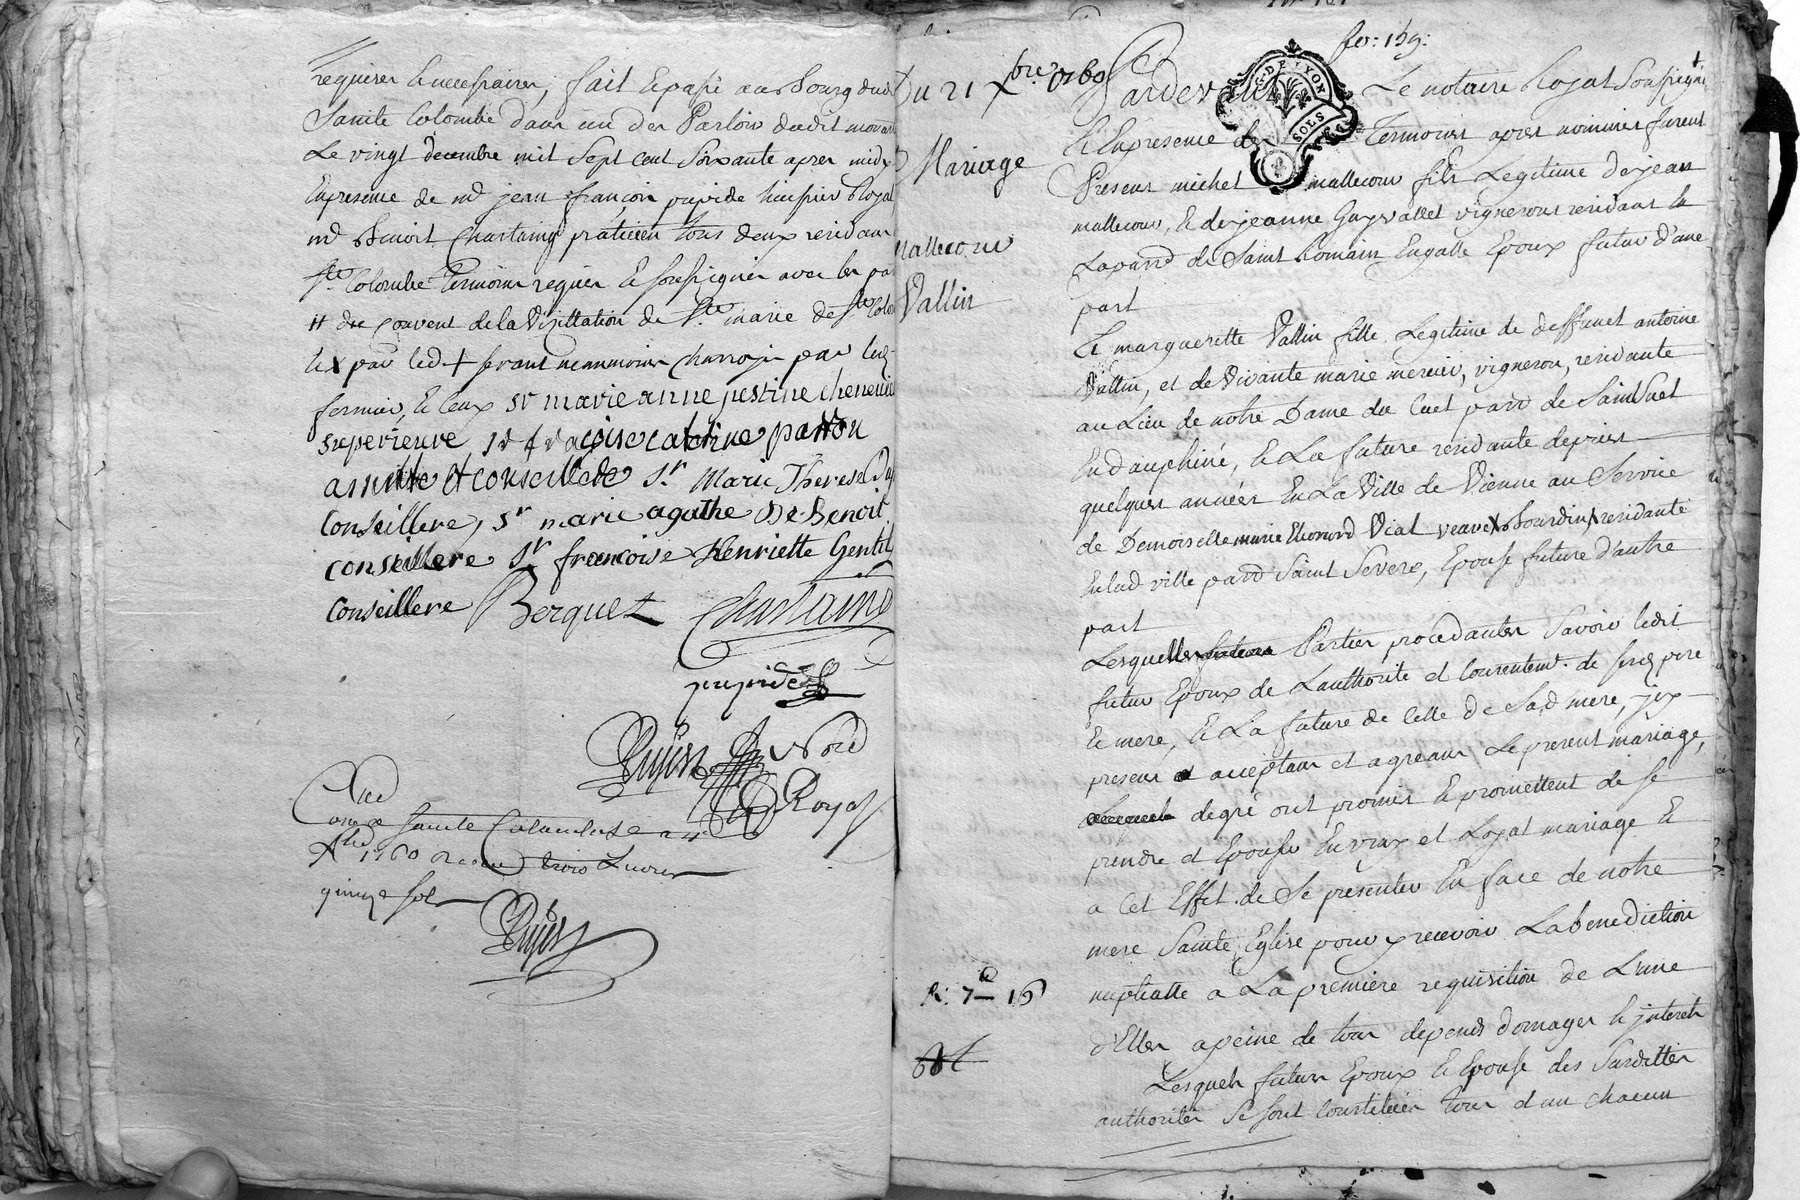 requerer & necessaires, fait & passé au Bourg dud
Sainte Colombe dans un des Parloir dudit monas
Le vingt decembre mil Sept cent Soixante apres midy
En presence de md jean françois pupide huissier Royal
md Benoit Chastaing praticien tous deux residant
Ste Colombe Temoins requis & soussignés avec les pa
# du couvent de la Visittation de Ste marie de Ste Colo
par led + serant neanmoins
fermier, & ceux sr marie anne justine
superieure sr catherine parron
assistte et conseillere Sr Marie Therese
Conseillere, Sr marie agathe De Benoit
conseillere Sr francoise Henriette Gentil
Conseillere Berguet Chastaing
pupide
Dujast Nore
Royal
Con
a Sainte Colombe
1760 Receu trois Livres
quinze sols
Dujast
fo: 159:
Du 21 Xbre 1760
Mariage
Mallecour
Vallin
R: 7 16
G. DE LYON
SOLS
Pardevant Le notaire Royal Soussigné
& En presence des Temoins apres nommés furent
Presens michel mallecour fils Legitime de jean
mallecour, & de jeanne Guyvallet vignerons residant la
Laparr de Saint Romain Engalle Epoux futur d'une
part
Et marguerette Vallin fille Legitime de deffunct antoine
Vallin, et de Vivante marie mercier, vigneron, residante
au Lieu de notre Dame du Cuet parr de
En dauphiné, & La future residante depuis
quelques années En La Ville de Vienne au Service
de Demoiselle marie Vial veuve Bourdin residante
En lad ville parr Saint Severe, Epouse future d'autre
part
Lesquelles Parties procedantes Savoir ledit
futur Epoux de L'authorité et Consentemt. de sesd pere
& mere, & La future de Celle de Sad mere, jcy
presens et acceptans et agreans Le present mariage,
de gré ont promis & promettent de se
prendre et Epouser En vray et Loyal mariage &
a Cet Effet de Se presenter En face de notre
mere Sainte Eglise pour y recevoir La benediction
nuptialle a La premiere requisition de L'une
d'Elles a peine de tous depends domages & jnterets
Lesquels futurs Epoux & Epouse des Susdittes
authorités Se sont Constitués tous et un chacun